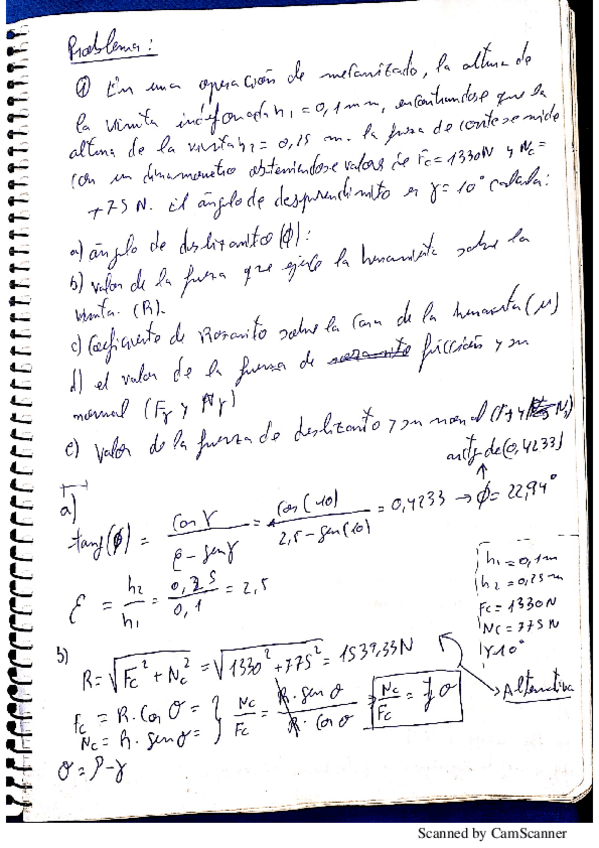 Problema:
① En una operación de mecanizado, la altura de
la viruta indeformada h₁ = 0,1 mm, encontrandose que la
altura de la viruta h₂ = 0,25 m. la fuerza de corte se mide
con un dinamometro obteniendose valores de Fc = 1330N y Nc =
+75 N. El ángulo de desprendimito es γ = 10° calcula:
a) ángulo de deslizamito (ϕ):
b) valor de la fuerza que ejerce la herramienta sobre la
viruta. (R).
c) Coeficiente de Rozamito sobre la cara de la herramienta (μ)
d) el valor de la fuerza de fricción y su
normal (Fγ y Nγ)
e) valor de la fuerza de deslizanto y su normal
arctg de (0,4233)
a)
tang(ϕ) = cos γ / ρ - sen γ = cos(10) / 2,5 - sen(10) = 0,4233 → ϕ = 22,94°
ε = h₂ / h₁ = 0,25 / 0,1 = 2,5
h₁ = 0,1 m
h₂ = 0,25 m
Fc = 1330 N
Nc = 775 N
γ 10°
b)
R = √Fc² + Nc² = √1330² + 775² = 1539,33N
Fc = R · Cos σ =
Nc = R · sen σ = } Nc / Fc = R · sen σ / R · cos σ = Nc / Fc = tg σ
Alternativa
σ = ρ - γ
Scanned by CamScanner